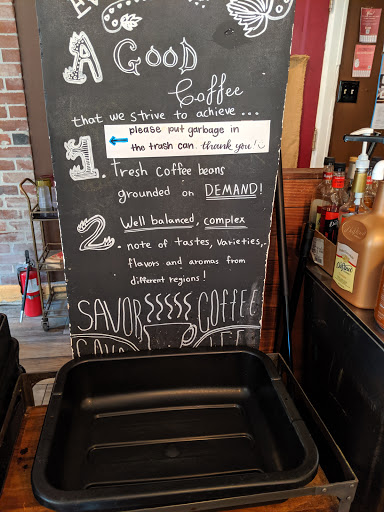 A GOOD
Coffee
that we strive to achieve ...
please put garbage in
the trash can. thank you!
1. Fresh coffee beans
grounded on DEMAND!
2. Well balanced, complex
note of tastes, varieties,
flavors and aromas from
different regions!
SAVOR COFFEE
DaVinci